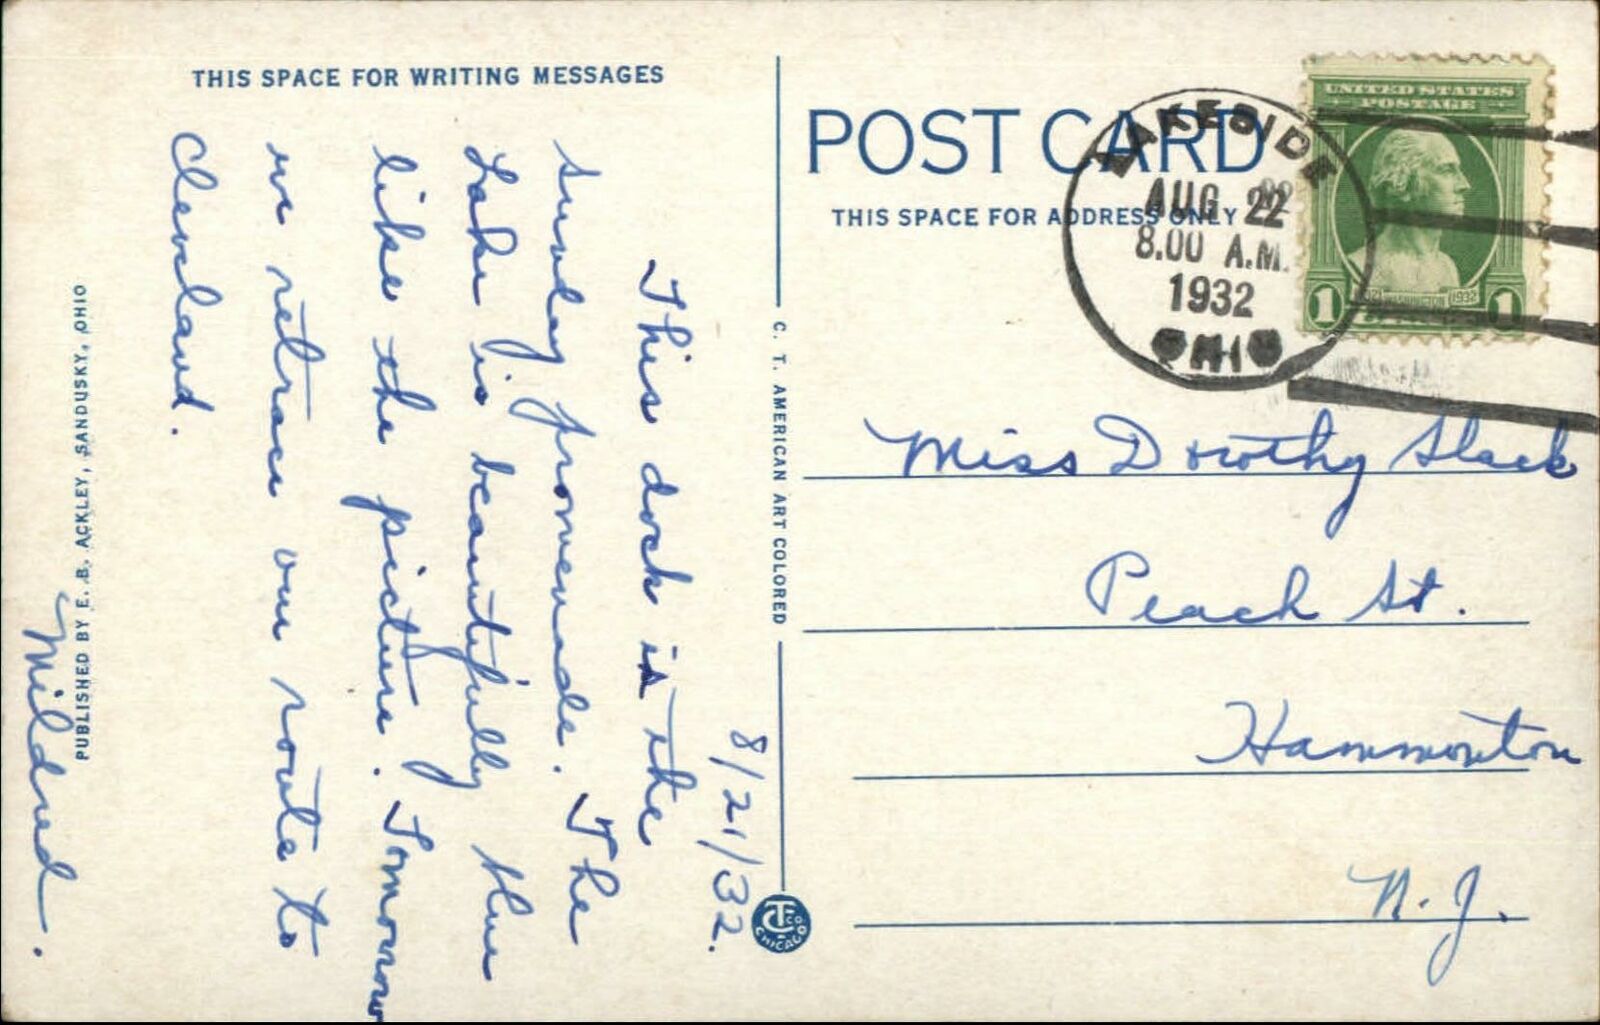 THIS SPACE FOR WRITING MESSAGES
8/21/32.
This dock is the
Sunday promenade. The
Lake is beautifully blue
like the picture. Tomorrow
we retrace our route to
Cleveland.
Mildred.
PUBLISHED BY E. B. ACKLEY, SANDUSKY, OHIO
C. T. AMERICAN ART COLORED
CTCO
CHICAGO
POST CARD
THIS SPACE FOR ADDRESS ONLY
LAKESIDE
AUG 22
8.00 A.M.
1932
OHIO
UNITED STATES
POSTAGE
WASHINGTON 1932
1 1
Miss Dorothy Slack
Peach St.
Hammonton
N. J.